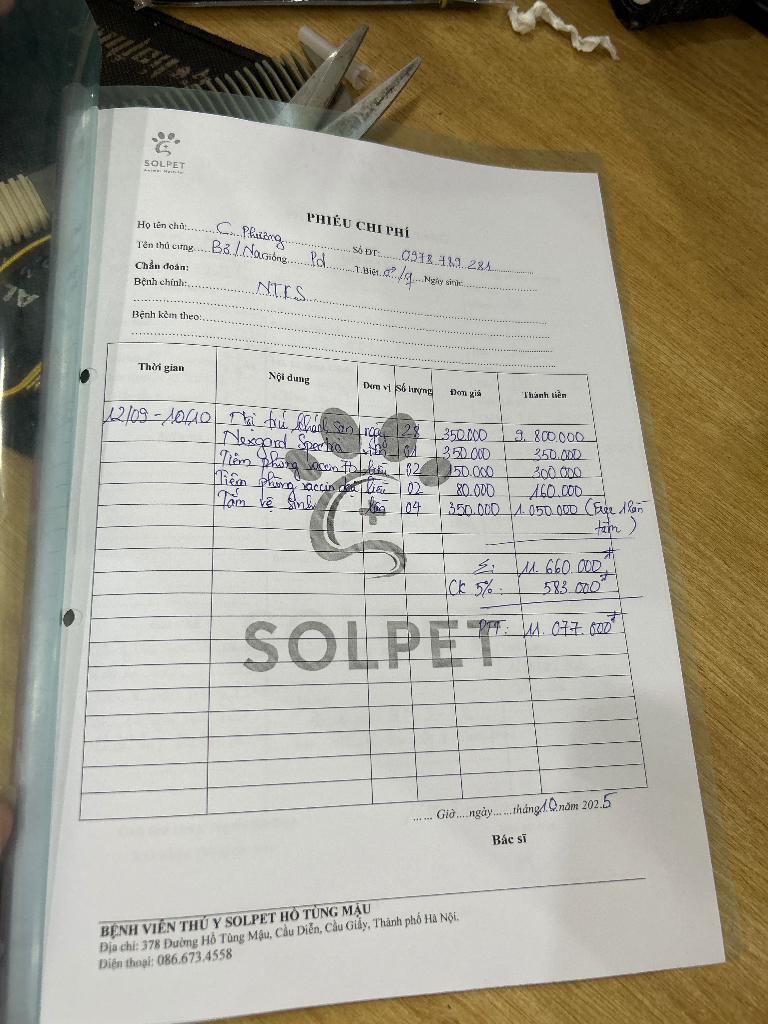 SOLPET
PHIẾU CHI PHÍ
Họ tên chủ: C. Phương Số ĐT: 0978.789.281
Tên thú cưng: Bơ/Na Giống: Pd T.Biệt: ♂/♀ Ngày sinh:
Chẩn đoán:
Bệnh chính: NTKS
Bệnh kèm theo:
Thời gian Nội dung Đơn vị Số lượng Đơn giá Thành tiền
12/09 - 10/10 Nội trú khách sạn ngày 28 350.000 9.800.000
Nexgard Spectra 01 350.000 350.000
Tiêm phòng vaccin liều 02 150.000 300.000
Tiêm phòng vaccin dại liều 02 80.000 160.000
Tắm vệ sinh lần 04 350.000 1.050.000 (Free 1 lần
tắm)
Σ: 11.660.000đ
CK 5%: 583.000đ
PTT: 11.077.000đ
SOLPET
...... Giờ....ngày......tháng 10 năm 2025
Bác sĩ
BỆNH VIỆN THÚ Y SOLPET HỒ TÙNG MẬU
Địa chỉ: 378 Đường Hồ Tùng Mậu, Cầu Diễn, Cầu Giấy, Thành phố Hà Nội.
Điện thoại: 086.673.4558